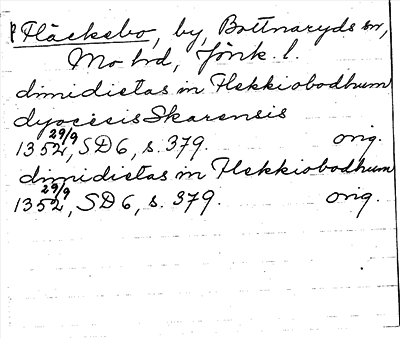 P Fläckebo, by, Bottnaryds sn,
Mo hd, Jönk. l.
dimidietas in Flekkiobodhum
dyocesis Skarensis
1352 29/9, SD 6, s. 379. orig.
dimidietas in Flekkiobodhum
1352 29/9, SD 6, s. 379. orig.